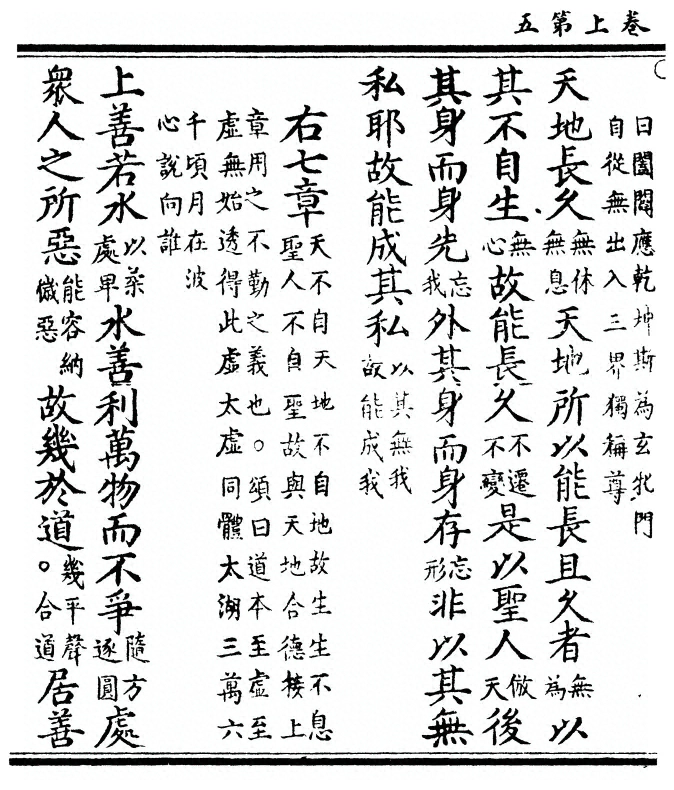 卷上第五
曰闔闢應乾坤斯為玄牝門
自從無出入三界獨稱尊
天地長久無休無息天地所以能長且久者無為以
其不自生無心故能長久不遷不變是以聖人倣天後
其身而身先忘我外其身而身存忘形非以其無
私耶故能成其私以其無我故能成我
右七章天不自天地不自地故生生不息聖人不自聖故與天地合德接上
章用之不勤之義也。頌曰道本至虛至
虛無始透得此虛太虛同體太湖三萬六
千頃月在波
心說向誰
上善若水以柔處卑水善利萬物而不爭隨方逐圓處
衆人之所惡能容納惡故幾於道。幾平聲合道居善